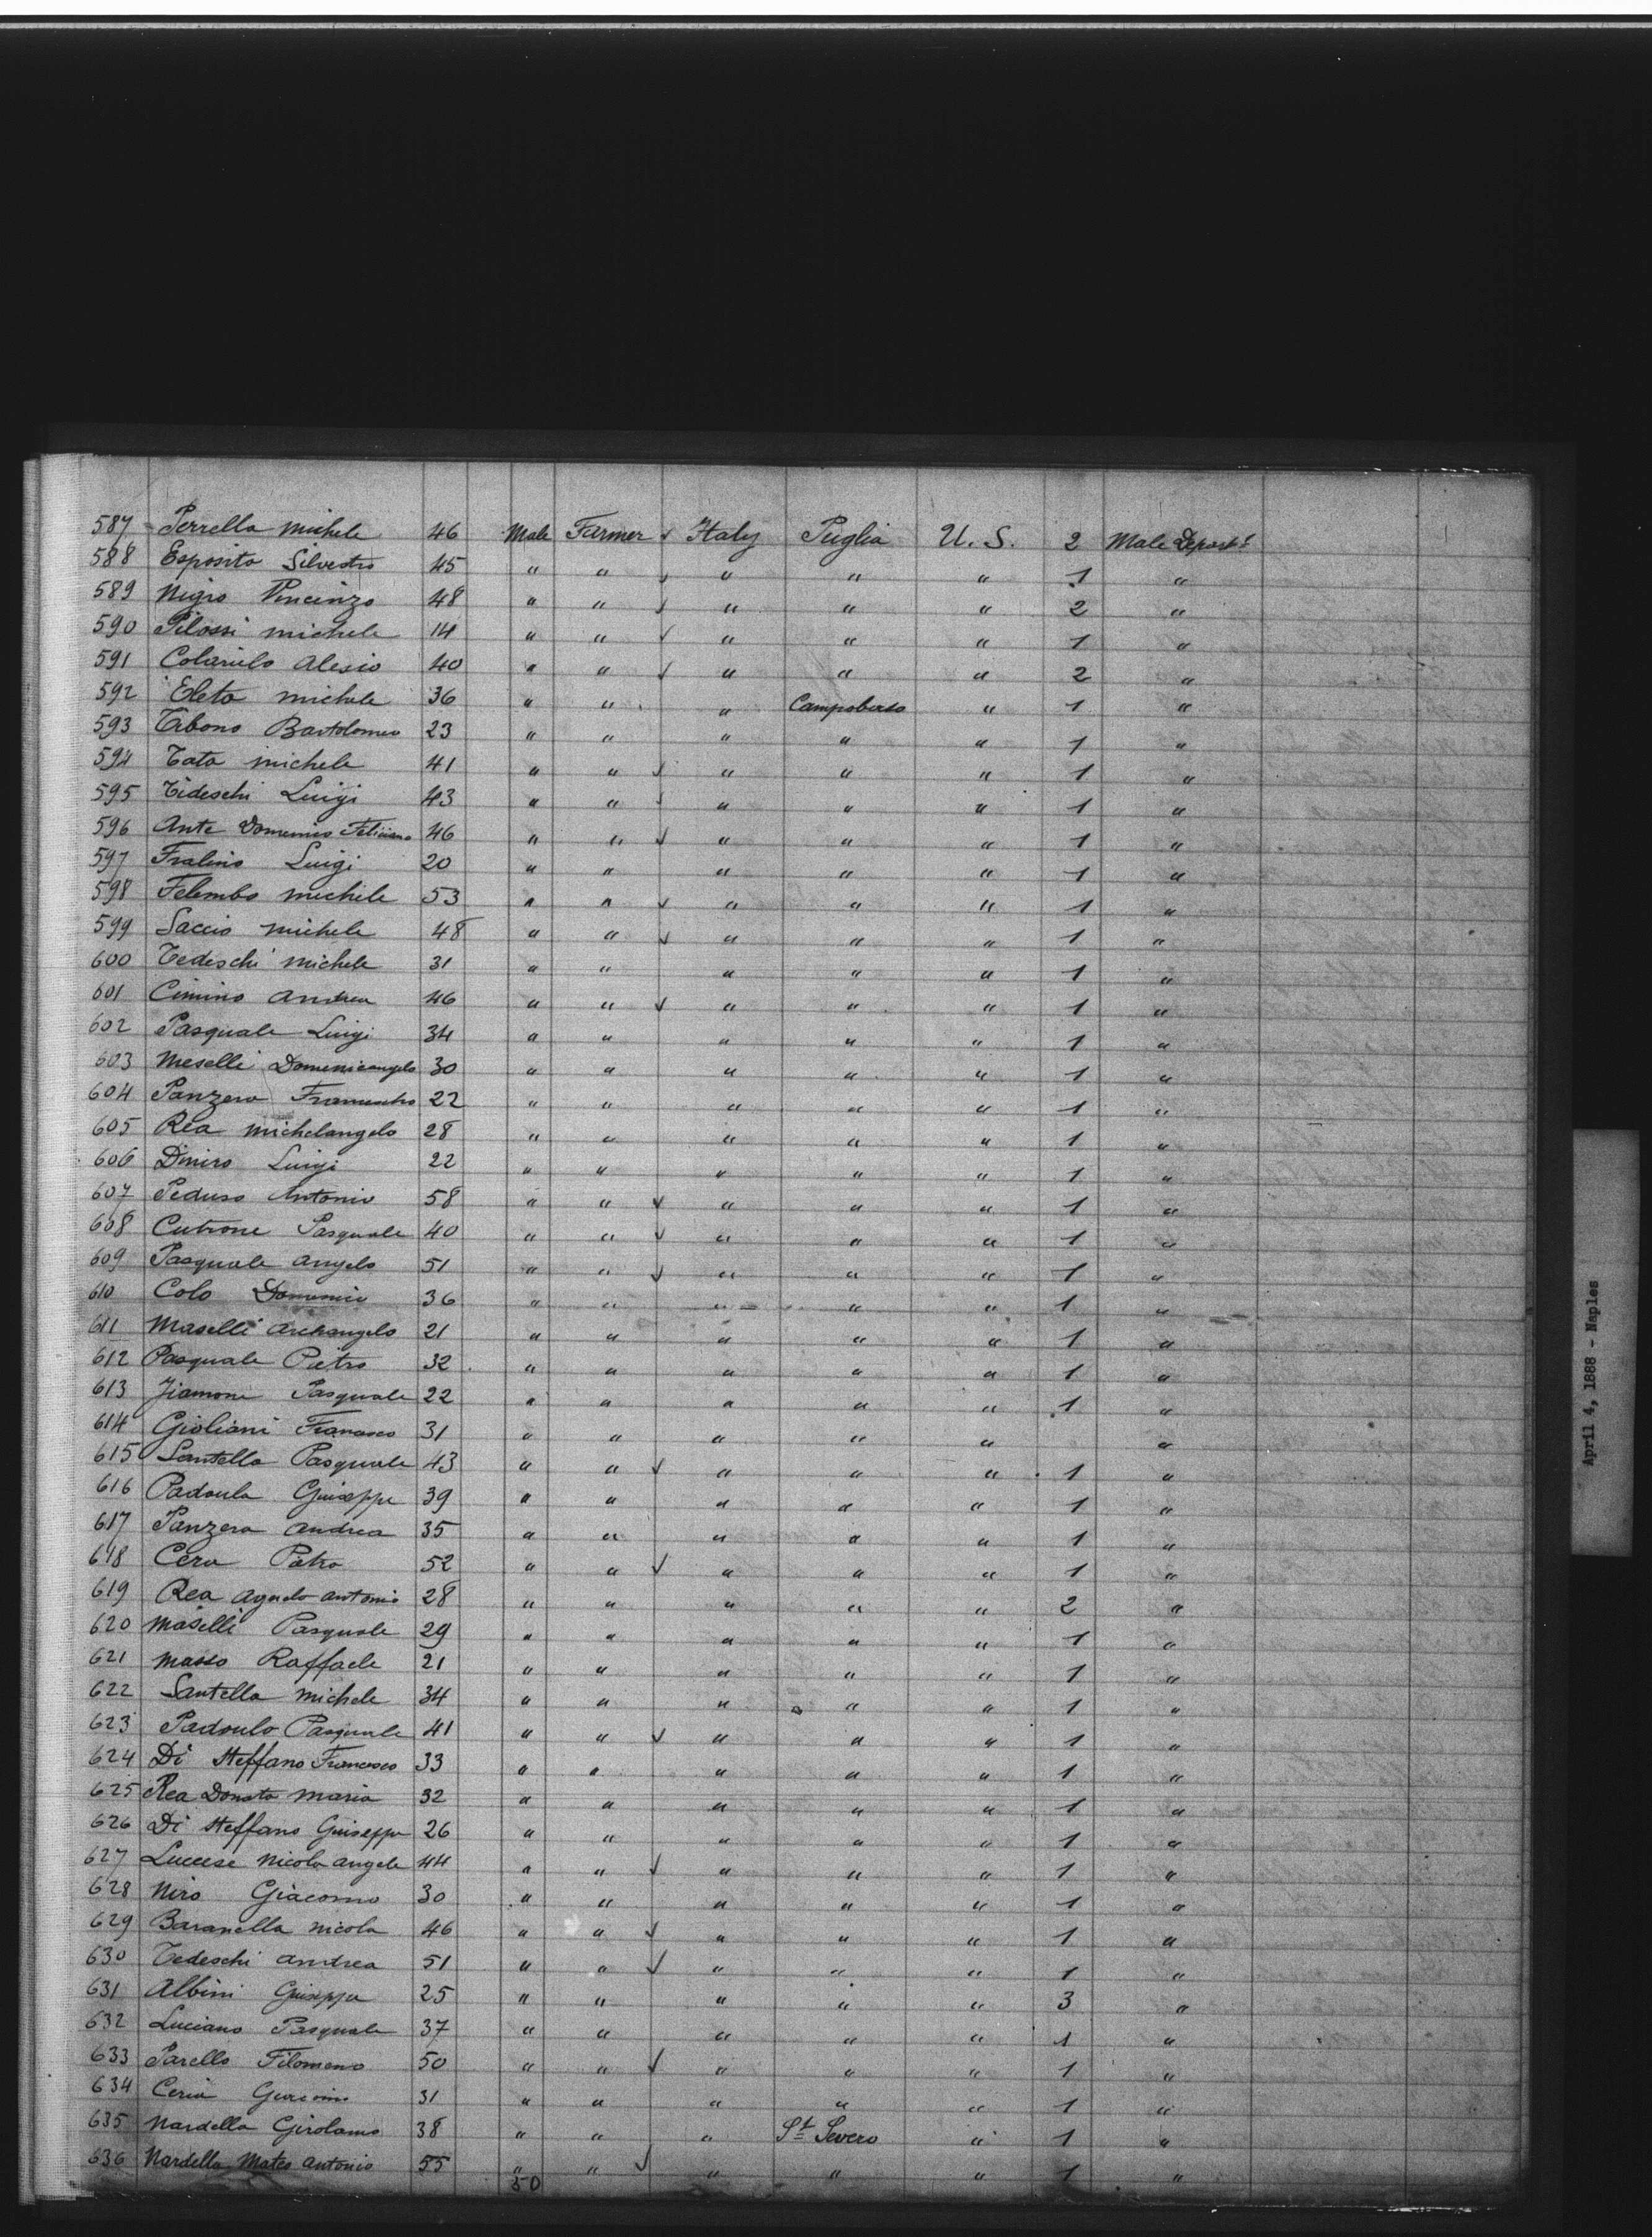 587 Perrella Michele 46 Male Farmer ✓ Italy Puglia U.S. 2 Male Depart.t
588 Esposito Silvestro 45 " " ✓ " " " 1 "
589 Nigro Vincinzo 48 " " ✓ " " " 2 "
590 Pilossi Michele 14 " " ✓ " " " 1 "
591 Colarielo Alesio 40 " " ✓ " " " 2 "
592 Eleta Michele 36 " " " Campobasso " 1 "
593 Tabono Bartolomeo 23 " " " " " 1 "
594 Tata Michele 41 " " ✓ " " " 1 "
595 Tideschi Luigi 43 " " ✓ " " " 1 "
596 Ante Domenico Feliciano 46 " " ✓ " " " 1 "
597 Fralino Luigi 20 " " " " " 1 "
598 Felembo Michele 53 " " ✓ " " " 1 "
599 Saccio Michele 48 " " ✓ " " " 1 "
600 Tedeschi Michele 31 " " " " " 1 "
601 Cimino Andrea 46 " " ✓ " " " 1 "
602 Pasquale Luigi 34 " " " " " 1 "
603 Meselli Domenicangelo 30 " " " " " 1 "
604 Panzera 22 " " " " " 1 "
605 Rea Michelangelo 28 " " " " " 1 "
606 Diniro Luigi 22 " " " " " 1 "
607 Peduso Antonio 58 " " ✓ " " " 1 "
608 Cutrone Pasquale 40 " " ✓ " " " 1 "
609 Pasquale Angelo 51 " " ✓ " " " 1 "
610 Colo Domenico 36 " " " " " 1 "
611 Maselli Archangelo 21 " " " " " 1 "
612 Pasquale Pietro 32 " " " " " 1 "
613 Jiamone Pasquale 22 " " " " " 1 "
614 Gioliani Francesco 31 " " " " " "
615 Santella Pasquale 43 " " ✓ " " " 1 "
616 Padoula Guiseppe 39 " " " " " 1 "
617 Panzera Andrea 35 " " " " " 1 "
618 Cera Pietro 52 " " ✓ " " " 1 "
619 Rea Agnelo Antonio 28 " " " " " 2 "
620 Maselli Pasquale 29 " " " " " 1 "
621 Masso Raffaele 21 " " " " " 1 "
622 Santella Michele 34 " " " " " 1 "
623 Padoulo Pasquale 41 " " ✓ " " " 1 "
624 Di Steffano Francesco 33 " " " " " 1 "
625 Rea Donato Maria 32 " " " " " 1 "
626 Di Steffano Guiseppe 26 " " " " " 1 "
627 Luccese Nicola Angelo 44 " " ✓ " " " 1 "
628 Niro Giacomo 30 " " " " " 1 "
629 Baranella Nicola 46 " " ✓ " " " 1 "
630 Tedeschi Andrea 51 " " ✓ " " " 1 "
631 Albini Guiseppe 25 " " " " " 3 "
632 Luciano Pasquale 37 " " " " " 1 "
633 Parello Filomeno 50 " " ✓ " " " 1 "
634 Ceria Giacomo 31 " " " " " 1 "
635 Nardella Girolamo 38 " " " St Severo " 1 "
636 Nardella Mateo Antonio 55 " " ✓ " " " 1 "
50
April 4, 1888 - Naples